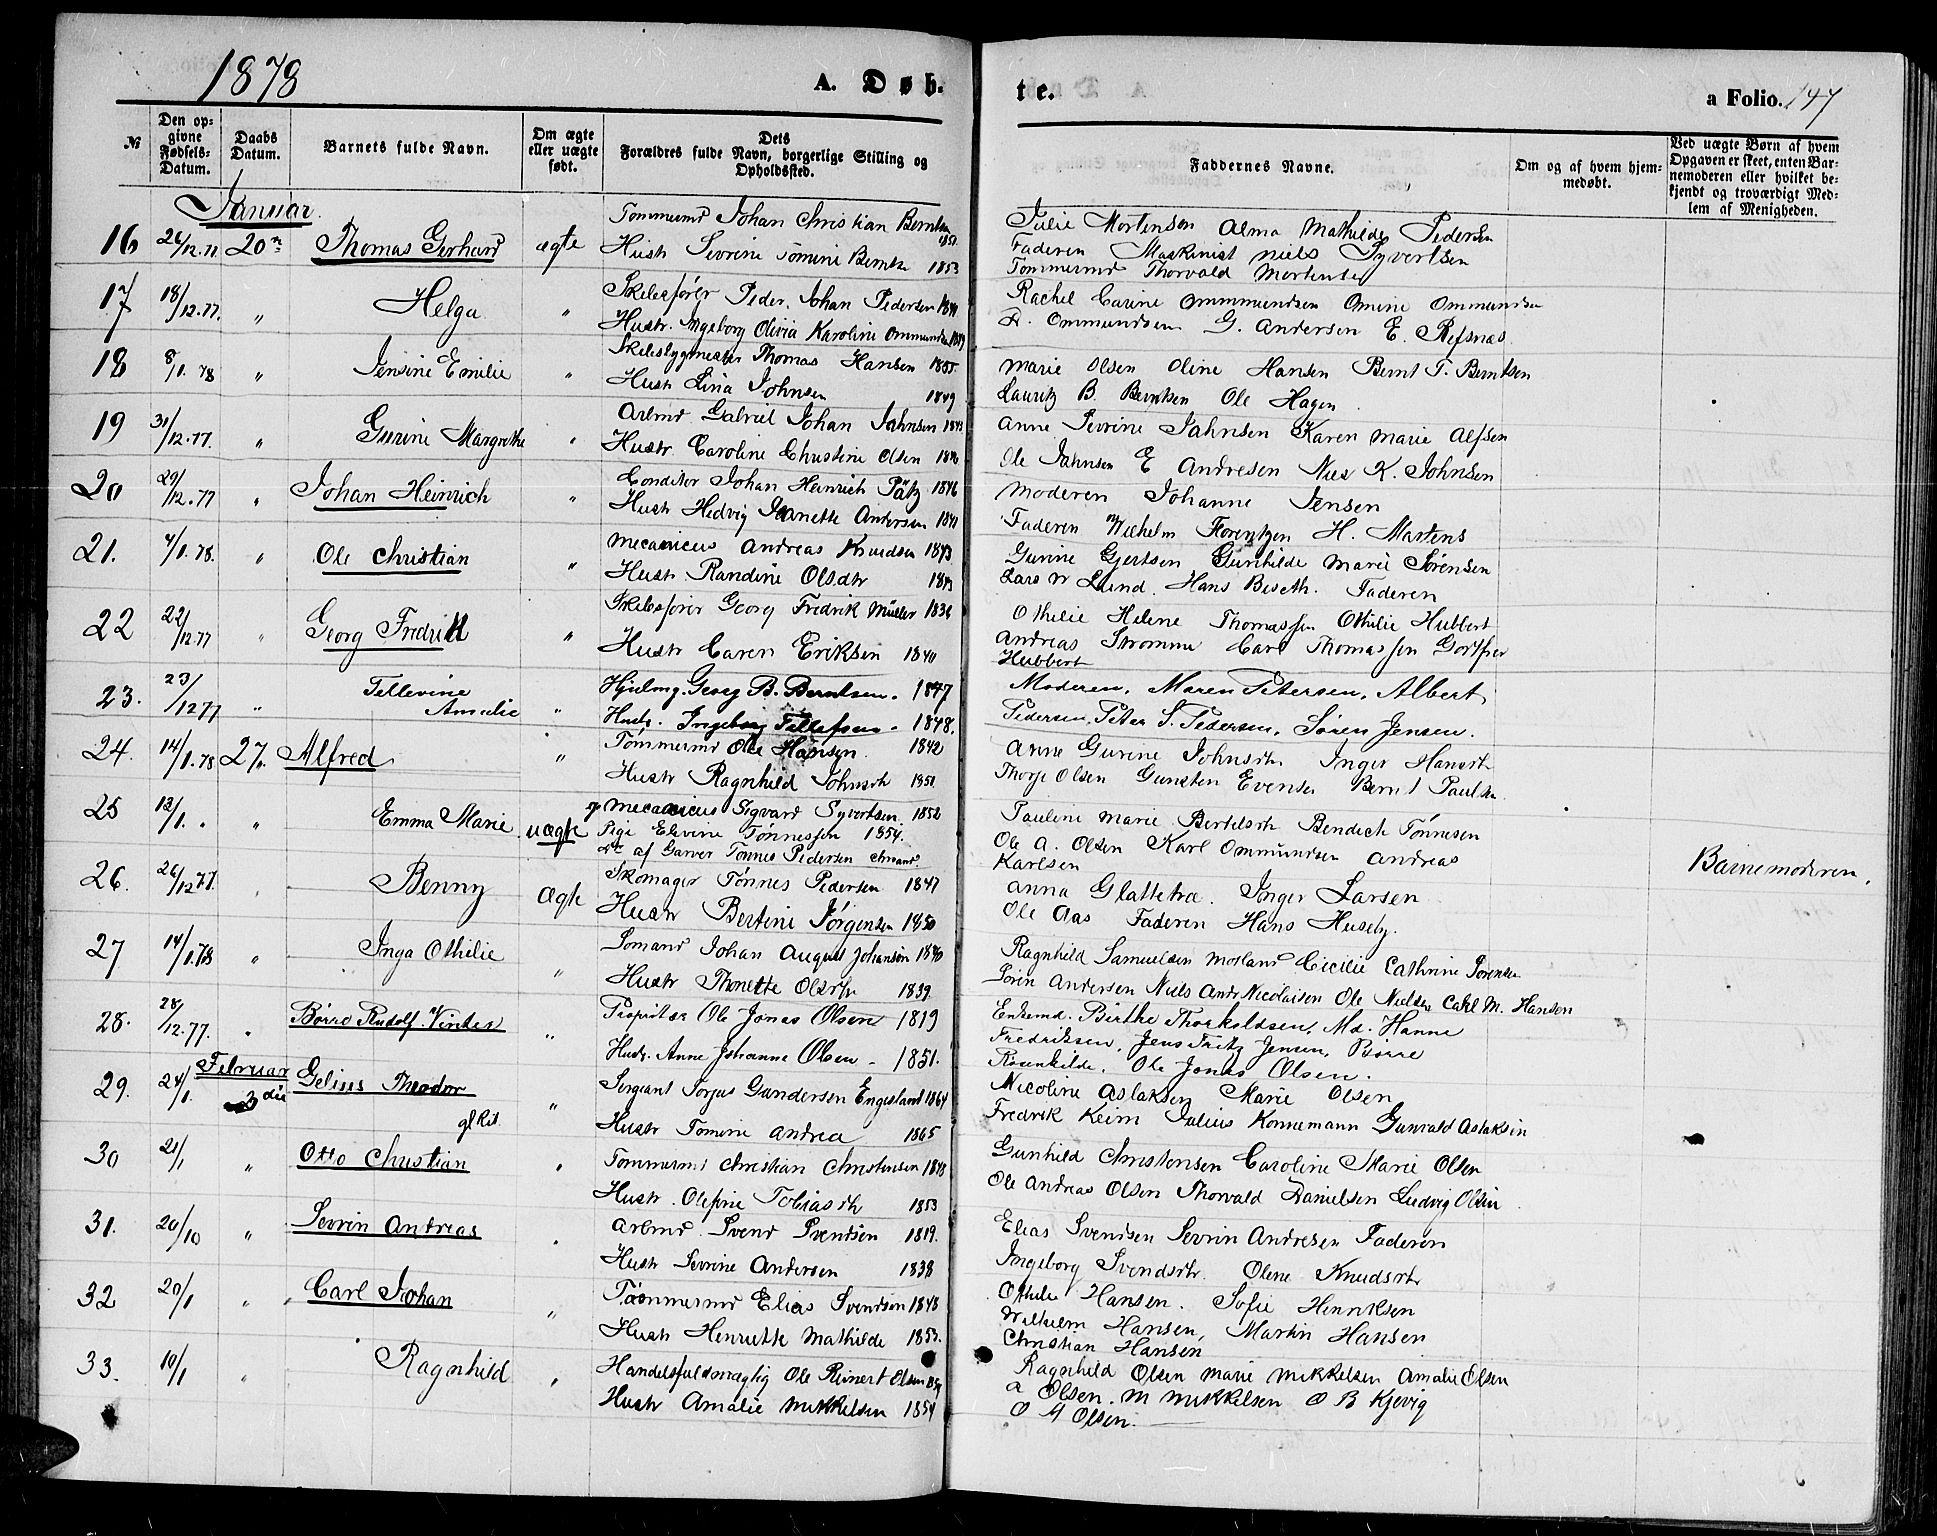 1878 A. Døb-
te. a Folio. 147
№ Den op-givne Fødsels-Datum. Daabs Datum. Barnets fulde Navn. Om ægte eller uægte født. Dets Forældres fulde Navn, borgerlige Stilling og Opholdssted. Faddernes Navne. Om og af hvem hjem-medøbt. Ved uægte Børn af hvem Opgaven er skeet, enten Bar-nemoderen eller hvilket be-kjendt og troværdigt Med-lem af Menigheden.
Januar
16 26/12.77 20de Thomas Gerhard ægte Tømmermd Johan Christian Berntsen 1851
Hustr Sevrine Tomine Berntsen 1853
Julie Mortensen Alma Mathilde Pedersen
Faderen Maskinist Niels Syvertsen
Tømmermd Thorvald Mortensen
17 18/12.77. " Helga " Skibsfører Peder Johan Pedersen
Hustr. Ingeborg Olivia Karoline Ommundsen
Rachel Carine Ommundsen Omine Ommundsen
Ommundsen G. Andersen E. Refsnæs
18 8/1.78 " Jensine Emilie " Skibsbygmester Thomas Hansen 1855
Hustr Lina Johnsen 1849
Marie Olsen Oline Hansen Bernt T. Berntsen
Lauritz B. Berntsen Ole Hagen
19 31/12.77. " Gurine Margrethe " Arbmd Gabriel Johan Jahnsen 1843
Hustr Caroline Christine Olsen
Anne Sevrine Jahnsen Karen Marie Alfsen
Ole Jahnsen E Andresen Niels K. Johnsen
20 29/12.77 " Johan Heinrich " Conditor Johan Heinrich Pätz 1846
Hustr Hedvig Jeanette Andersen
Moderen Johanne Jensen
Faderen Wilhelm Florentzen H. Martens
21. 4/1.78. " Ole Christian " Mecanicus Andreas Knudsen 1843
Hustr Randine Olsdtr
Gurine Gjertsen Gunhilde Marie Sørensen
Lars W Lund. Hans Beseth. Faderen
22 22/12.77 " Georg Fredrik " Skibsfører Georg Fredrik Müller 1836
Hustr Caren Eriksen 1840
Othilie Helene Thomassen Othilie Hubbert
Andreas Strømme Carl Thomassen
Hubbert
23. 23/1277 " Tellevine Amalie " Hjulmg. Georg B. Berntsen. 1847
Hustr. Ingeborg Tellefsen. 1848.
Moderen, Maren Petersen, Albert
Pedersen, Peter S. Pedersen, Søren Jensen.
24. 14/1.78 27. Alfred " Tømmermd Ole Hansen. 1842
Hustr Ragnhild Johnsdtr 1851
Anne Gurine Johnsdtr Inger Hansdtr
Thorje Olsen Gunsten Evensen Bernt Paulsen
25 12/1. " Emma Marie uægte Mecanicus Sigvard Syvertsen. 1852
Pige Elevine Tønnessen 1854.
Dtr af Garver Tønnes Pedersen
Pauline Marie Berthelsdtr Bendick Tønnesen
Ole A. Olsen Karl Ommundsen Andreas
Karlsen
Barnemoderen.
26. 26/12.77. " Benny ægte Skomager Tønnes Pedersen 1847
Hustr Bertine Jørgensen 1850
Anna Glattetra. Inger Larsen
Ole Aas Faderen Hans Huseby.
27 14/1.78 " Inga Othilie " Sømand Johan August Johansen 1840
Hustr Thonette Olsdtr 1839
Ragnhild Samuelsen Mosland Cicilie Cathrine Sørensen
Søren Andersen Niels Andr Nicolaisen Ole Nielsen Carl M. Hansen
28. 28/12.77. " Børre Rudolf Winter " Proprietær Ole Jonas Olsen 1819
Hustr. Anne Johanne Olsen - 1851.
Enkemd. Birthe Thorkildsen, Md. Hanne
Fredriksen, Jens Fritz Jensen, Børre
Rosenkilde, Ole Jonas Olsen.
Februar
29. 24/1. 3die Gelius Theodor " Sergiant Torjus Gundersen Engesland
Hustr Tomine Andrea
Nicoline Aslaksen Marie Olsen
Fredrik Keim Julius Konnemann Gunvald Aslaksen
30 21/1 " Otto Christian " Tømmermd Christian Christensen 1848
Hustr. Olefine Tobiasdtr 1853
Gunhild Christensen Caroline Marie Olsen
Ole Andreas Olsen Thorvald Danielsen Ludvig Olsen
31. 20/10 " Sevrin Andreas " Arbmd Svend Svendsen 1819.
Hustr Sevrine Andersen 1838
Elias Svendsen Sevrin Andresen Faderen
Ingeborg Svendsdtr. Olene Knudsdtr
32 20/1 " Carl Johan " Tømmermd Elias Svendsen 1848
Hustr Henriette Mathilde 1853.
Othilie Hansen. Sofie Henriksen
Wilhelm Hansen, Martin Hansen
Christian Hansen
33. 10/1 " Ragnhild " Handelsfuldmægtig Ole Reinert Olsen
Hustr Amalie Mikkelsen 1854
Ragnhild Olsen Marie Mikkelsen Amalie Olsen
A Olsen. M Mikkelsen O B Kjevig
O A Olsen.